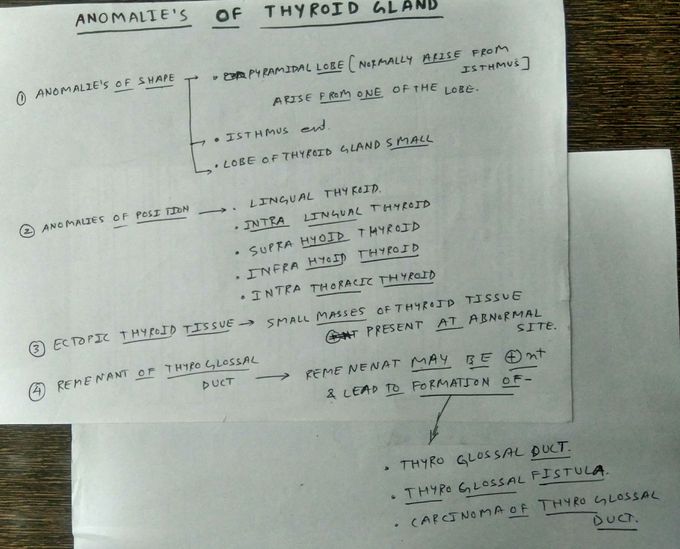 ANOMALIE'S OF THYROID GLAND
① ANOMALIE'S OF SHAPE → • PYRAMIDAL LOBE [NORMALLY ARISE FROM ISTHMUS]
ARISE FROM ONE OF THE LOBE.
• ISTHMUS
• LOBE OF THYROID GLAND SMALL
② ANOMALIES OF POSITION → • LINGUAL THYROID.
• INTRA LINGUAL THYROID
• SUPRA HYOID THYROID
• INFRA HYOID THYROID
• INTRA THORACIC THYROID
③ ECTOPIC THYROID TISSUE → SMALL MASSES OF THYROID TISSUE
PRESENT AT ABNORMAL SITE.
④ REMENANT OF THYRO GLOSSAL DUCT → REMENENAT MAY BE ⊕nt
& LEAD TO FORMATION OF-
• THYRO GLOSSAL DUCT.
• THYRO GLOSSAL FISTULA.
• CARCINOMA OF THYRO GLOSSAL
DUCT.